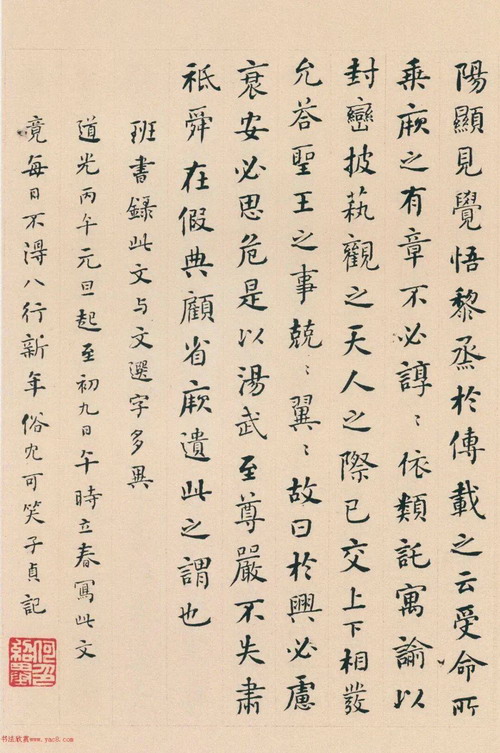 陽顯見覺悟黎烝於傳載之云受命所
乘厥之有章不必諄〻依類託寓諭以
封巒披藝觀之天人之際已交上下相發
允荅聖王之事兢〻翼〻故曰於興必慮
衰安必思危是以湯武至尊嚴不失肅
祗舜在假典顧省厥遺此之謂也
班書錄此文与文選字多異
道光丙午元旦起至初九日午時立春寫此文
竟每日不得八行新年俗冗可笑子貞記
何紹基
书法欣赏www.yac8.com